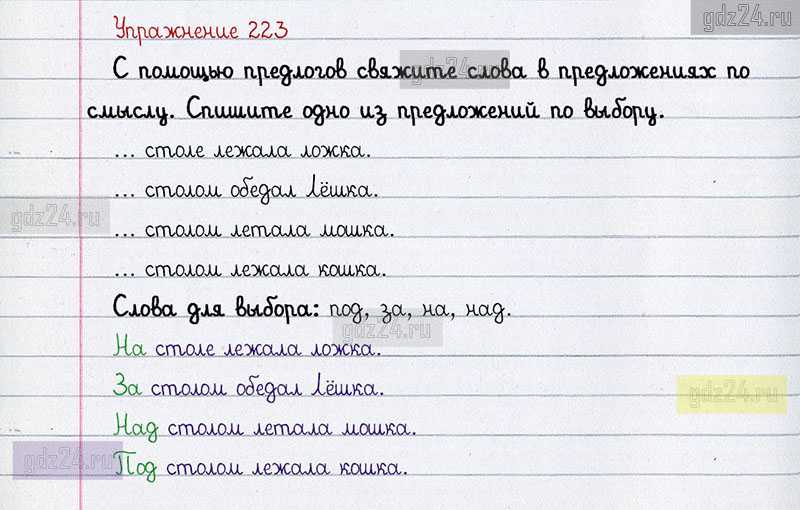 gdz24.ru
Упражнение 223
С помощью предлогов свяжите слова в предложениях по
gdz24.ru
смыслу. Спишите одно из предложений по выбору.
... столе лежала ложка.
... столом обедал Лёшка.
gdz24.ru
... столом летала мошка.
... столом лежала кошка.
Слова для выбора: под, за, на, над.
gdz24.ru
На столе лежала ложка.
За столом обедал Лёшка.
gdz24.ru
Над столом летала мошка.
gdz24.ru
Под столом лежала кошка.